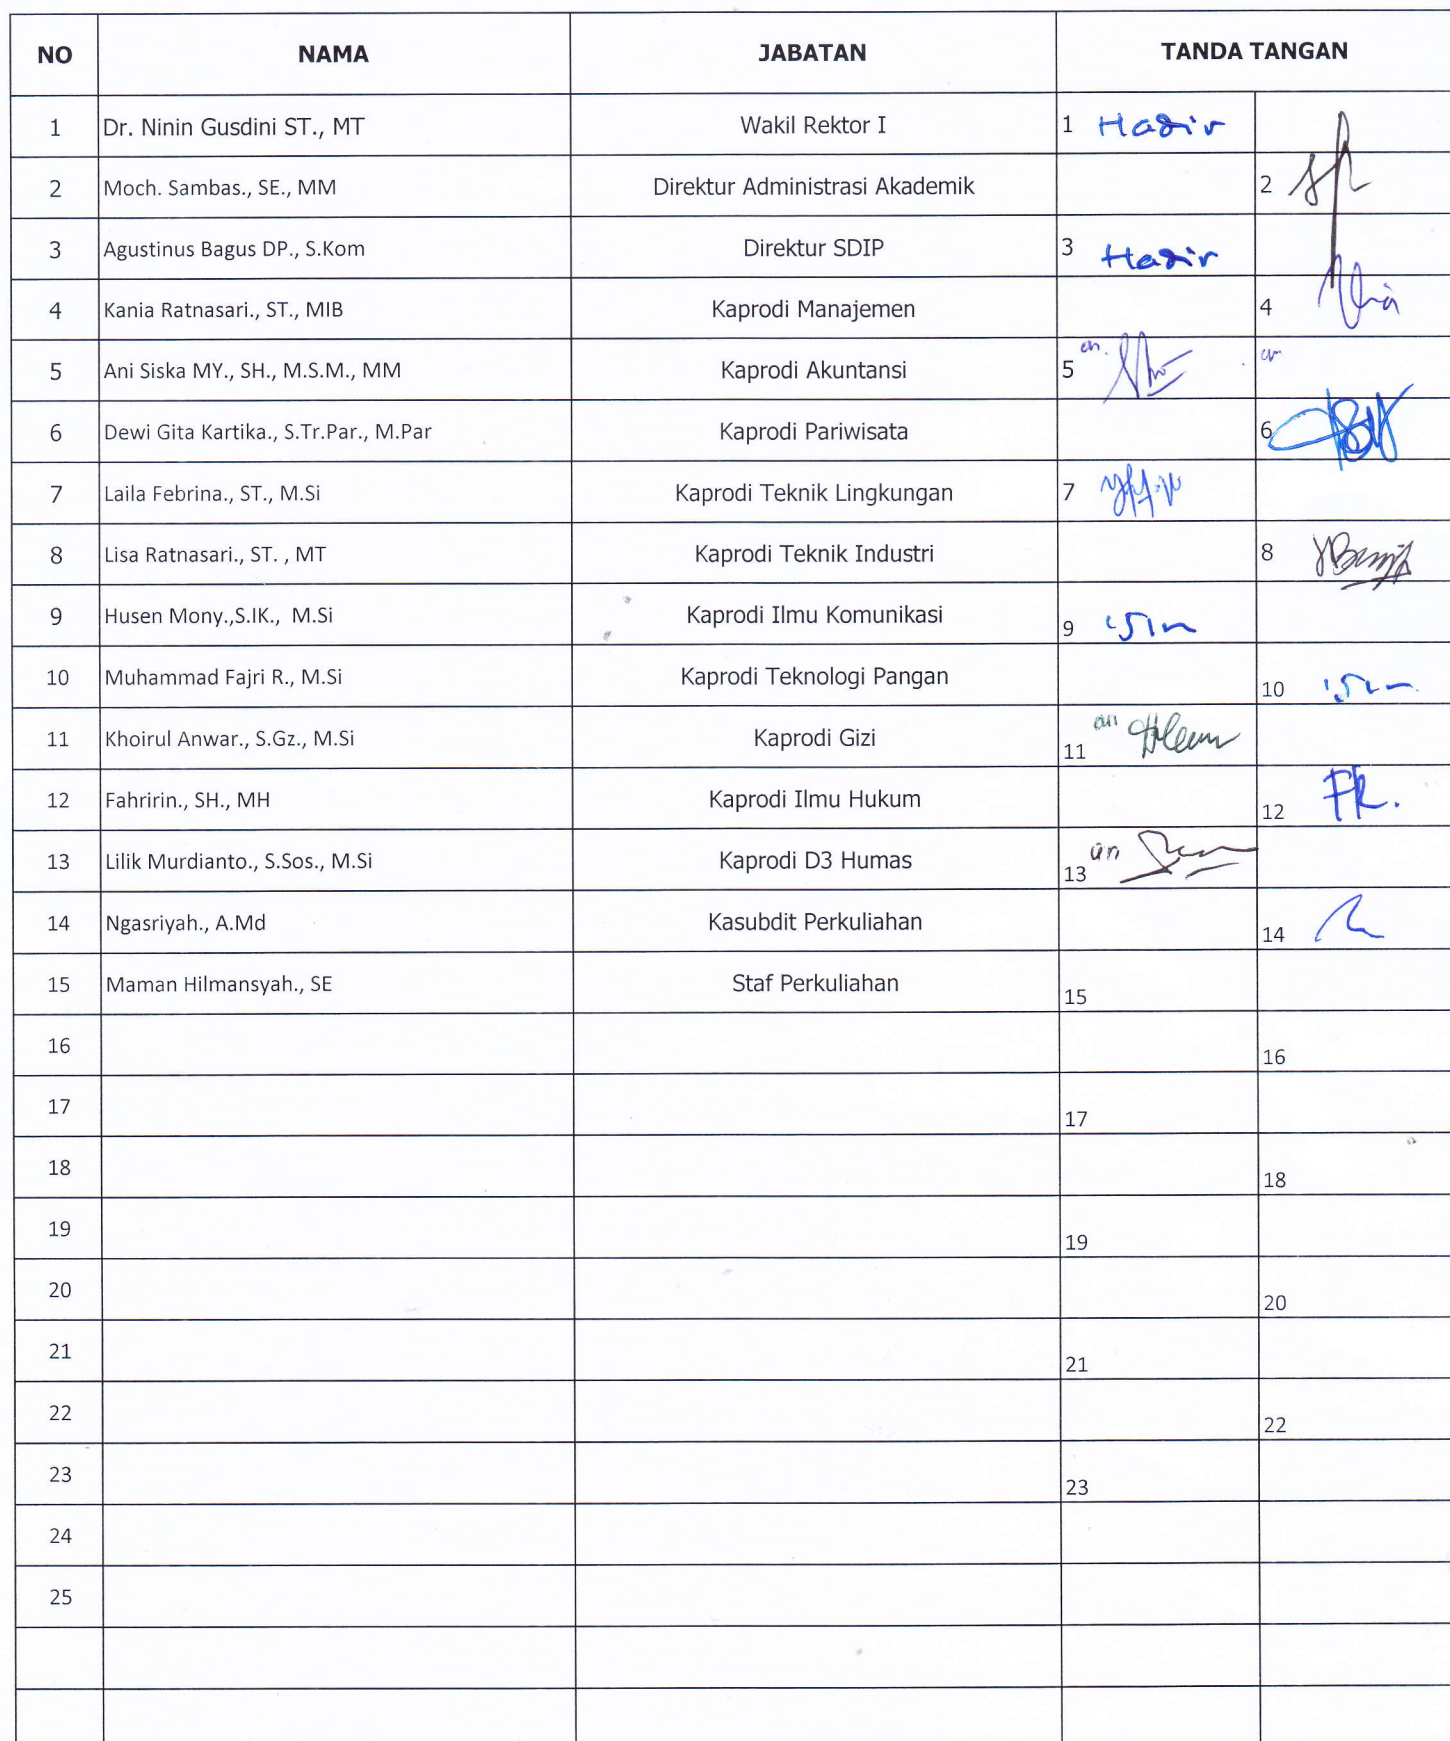 NO NAMA JABATAN TANDA TANGAN
1 Dr. Ninin Gusdini ST., MT Wakil Rektor I 1 Hadir
2 Moch. Sambas., SE., MM Direktur Administrasi Akademik 2
3 Agustinus Bagus DP., S.Kom Direktur SDIP 3 Hadir
4 Kania Ratnasari., ST., MIB Kaprodi Manajemen 4
5 Ani Siska MY., SH., M.S.M., MM Kaprodi Akuntansi 5 an.
6 Dewi Gita Kartika., S.Tr.Par., M.Par Kaprodi Pariwisata 6
7 Laila Febrina., ST., M.Si Kaprodi Teknik Lingkungan 7
8 Lisa Ratnasari., ST. , MT Kaprodi Teknik Industri 8
9 Husen Mony.,S.IK., M.Si Kaprodi Ilmu Komunikasi 9
10 Muhammad Fajri R., M.Si Kaprodi Teknologi Pangan 10
11 Khoirul Anwar., S.Gz., M.Si Kaprodi Gizi 11 an
12 Fahririn., SH., MH Kaprodi Ilmu Hukum 12
13 Lilik Murdianto., S.Sos., M.Si Kaprodi D3 Humas 13 an
14 Ngasriyah., A.Md Kasubdit Perkuliahan 14
15 Maman Hilmansyah., SE Staf Perkuliahan 15
16 16
17 17
18 18
19 19
20 20
21 21
22 22
23 23
24
25